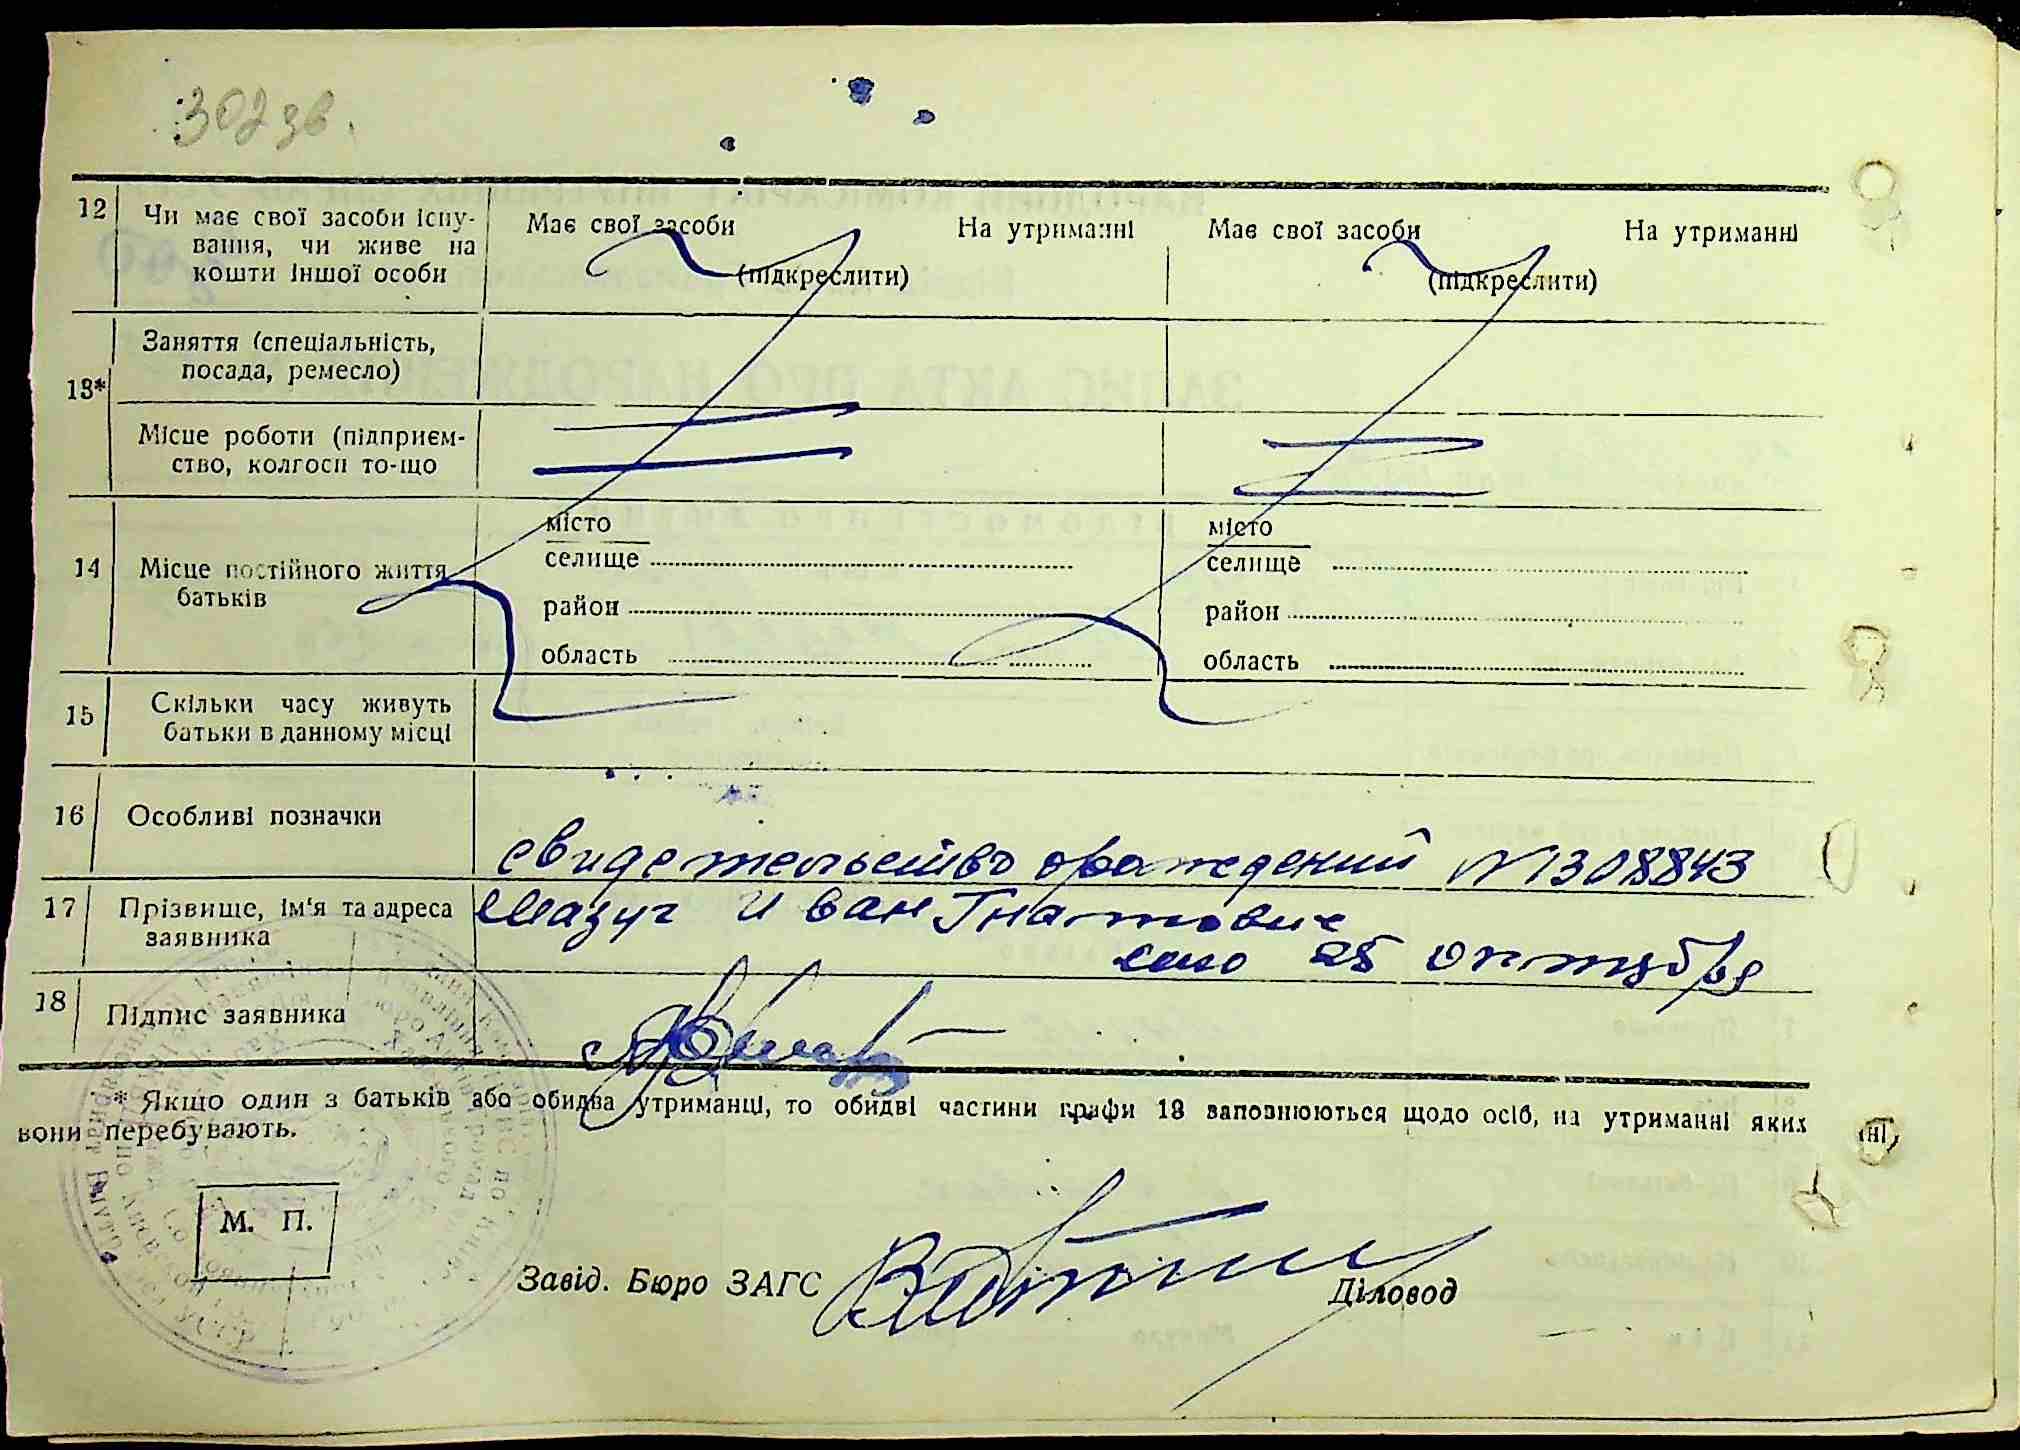 302 зв.
12 Чи має свої засоби існу-
вання, чи живе на
кошти іншої особи
Має свої засоби На утриманні
(підкреслити)
Має свої засоби На утриманні
(підкреслити)
13*
Заняття (спеціальність,
посада, ремесло)
Місце роботи (підприєм-
ство, колгосп то-що
14 Місце постійного життя
батьків
місто
селище
район
область
місто
селище
район
область
15 Скільки часу живуть
батьки в данному місці
16 Особливі позначки
свидетельство о рождений N 1308843
17 Прізвище, ім'я та адреса
заявника
Мазуч Иван Гнатович
село 25 октября
18 Підпис заявника
* Якщо один з батьків або обидва утриманці, то обидві частини графи 13 заповнюються щодо осіб, на утриманні яких
вони перебувають.
М. П.
Завід. Бюро ЗАГС
Діловод